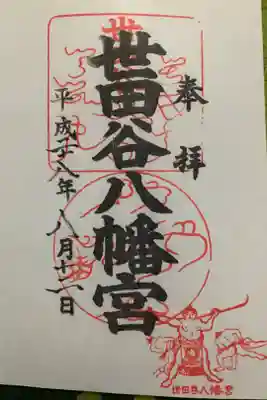 奉拝
世田谷八幡宮
平成二十八年八月十一日
世田谷八幡宮